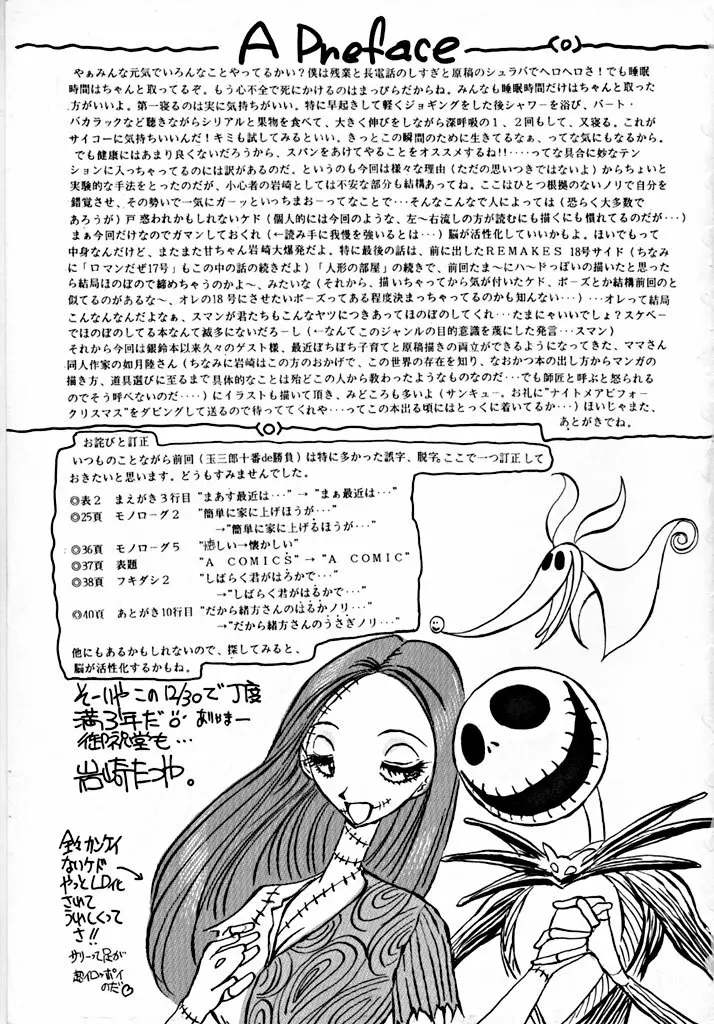 A Preface
やぁみんな元気でいろんなことやってるかい？僕は残業と長電話のしすぎと原稿のシュラバでヘロヘロさ！でも睡眠
時間はちゃんと取ってるぞ。もう心不全で死にかけるのはまっぴらだからね。みんなも睡眠時間だけはちゃんと取った
方がいいよ。第一寝るのは実に気持ちがいい。特に早起きして軽くジョギングをした後シャワーを浴び、バート・
バカラックなど聴きながらシリアルと果物を食べて、大きく伸びをしながら深呼吸の１、２回もして、又寝る。これが
サイコーに気持ちいいんだ！キミも試してみるといい。きっとこの瞬間のために生きてるなぁ、ってな気にもなるから。
でも健康にはあまり良くないだろうから、スパンをあけてやることをオススメするね!!‥‥ってな具合に妙なテン
ションに入っちゃってるのには訳があるのだ。というのも今回は様々な理由（ただの思いつきではないよ）からちょいと
実験的な手法をとったのだが、小心者の岩崎としては不安な部分も結構あってね。ここはひとつ根拠のないノリで自分を
錯覚させ、その勢いで一気にガーッといっちまおーってなことで‥‥そんなこんなで人によっては（恐らく大多数で
あろうが）戸惑われかもしれないケド（個人的には今回のような、左〜右流しの方が読むにも描くにも慣れてるのだが…）
まぁ今回だけなのでガマンしておくれ（←読み手に我慢を強いるとは…）脳が活性化していいかもよ。ほいでもって
中身なんだけど、またまた甘ちゃん岩崎大爆発だよ。特に最後の話は、前に出したＲＥＭＡＫＥＳ 18号サイド（ちなみ
に「ロマンだぜ17号」もこの中の話の続きだよ）「人形の部屋」の続きで、前回たま〜にハ〜ドっぽいの描いたと思った
ら結局ほのぼので締めちゃうのかよ〜、みたいな（それから、描いちゃってから気が付いたケド、ポーズとか結構前回のと
似てるのがあるな〜、オレの18号にさせたいポーズってある程度決まっちゃってるのかも知んない…）…オレって結局
こんなんなんだよなぁ、スマンが君たちもこんなヤツにつきあってほのぼのしてくれ…たまにゃいいでしょ？スケベー
でほのぼのしてる本なんて滅多にないだろーし（←なんてこのジャンルの目的意識を蔑にした発言…スマン）
それから今回は銀鈴本以来久々のゲスト様、最近ぼちぼち子育てと原稿描きの両立ができるようになってきた、ママさん
同人作家の如月陸さん（ちなみに岩崎はこの方のおかげで、この世界の存在を知り、なおかつ本の出し方からマンガの
描き方、道具選びに至るまで具体的なことは殆どこの人から教わったようなものなのだ…でも師匠と呼ぶと怒られる
のでそう呼べないのだ‥‥）にイラストも描いて頂き、みどころも多いよ（サンキュー。お礼に”ナイトメアビフォー
クリスマス”をダビングして送るので待っててくれや…ってこの本出る頃にはとっくに着いてるか…）ほいじゃまた、
あとがきでね。
お詫びと訂正
いつものことながら前回（玉三郎十番de勝負）は特に多かった誤字、脱字、ここで一つ訂正して
おきたいと思います。どうもすみませんでした。
◎表２　まえがき３行目 ”まあす最近は…” → ”まぁ最近は…”
◎25頁　モノローグ２　”簡単に家に上げほうが…”
→”簡単に家に上げるほうが…”
◎36頁　モノローグ５　”しい→懐かしい”
◎37頁　表題　”A COMICS” → ”A COMIC”
◎38頁　フキダシ２　”しばらく君がはろかで…”
→”しばらく君がはるかで…”
◎40頁　あとがき10行目 ”だから緒方さんのはるかノリ…”
→”だから緒方さんのうさぎノリ…”
他にもあるかもしれないので、探してみると、
脳が活性化するかもね。
そーいや この12/30で丁度
満３年だ ありはまー
御祝堂も…
岩崎たつや。
全々カンケイ
ないケド
やっとLD化
されて
うれしくって
さ!!
サリーって足が
超イロッポイ
のだ♡